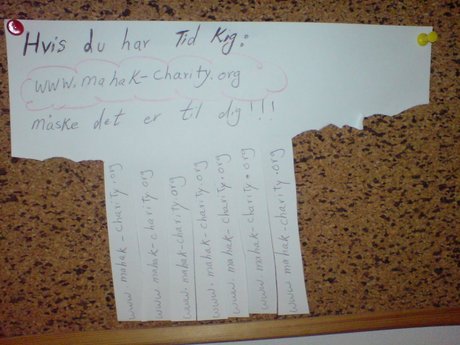 Hvis du har Tid Kig:
www.mahak-charity.org
måske det er til dig!!!
www.mahak-charity.org
www.mahak-charity.org
www.mahak-charity.org
www.mahak-charity.org
www.mahak-charity.org
www.mahak-charity.org
www.mahak-charity.org